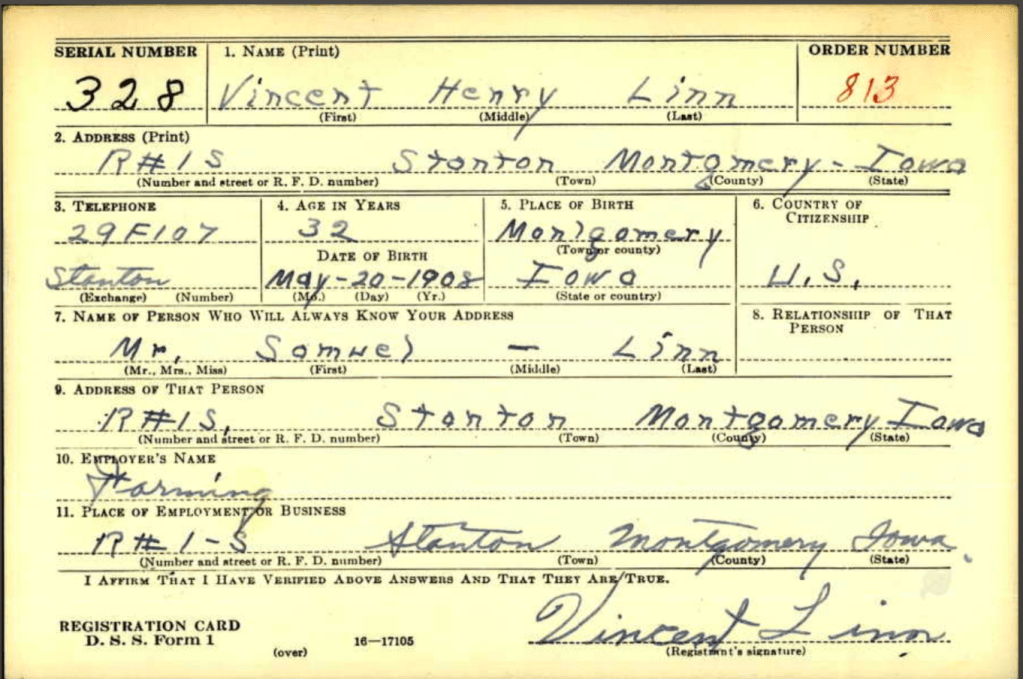 SERIAL NUMBER 1. NAME (Print) ORDER NUMBER
328 Vincent Henry Linn 813
(First) (Middle) (Last)
2. ADDRESS (Print)
R#1S Stanton Montgomery - Iowa
(Number and street or R. F. D. number) (Town) (County) (State)
3. TELEPHONE 4. AGE IN YEARS 5. PLACE OF BIRTH 6. COUNTRY OF CITIZENSHIP
29F107 32 Montgomery
DATE OF BIRTH (Town or county)
Stanton May-20-1908 Iowa U.S.
(Exchange) (Number) (Mo.) (Day) (Yr.) (State or country)
7. NAME OF PERSON WHO WILL ALWAYS KNOW YOUR ADDRESS 8. RELATIONSHIP OF THAT PERSON
Mr. Samuel — Linn
(Mr., Mrs., Miss) (First) (Middle) (Last)
9. ADDRESS OF THAT PERSON
R#1S, Stanton Montgomery Iowa
(Number and street or R. F. D. number) (Town) (County) (State)
10. EMPLOYER'S NAME
Farming
11. PLACE OF EMPLOYMENT OR BUSINESS
R#1-S Stanton Montgomery Iowa.
(Number and street or R. F. D. number) (Town) (County) (State)
I AFFIRM THAT I HAVE VERIFIED ABOVE ANSWERS AND THAT THEY ARE TRUE.
Vincent Linn
REGISTRATION CARD
D. S. S. Form 1 16—17105
(over) (Registrant's signature)